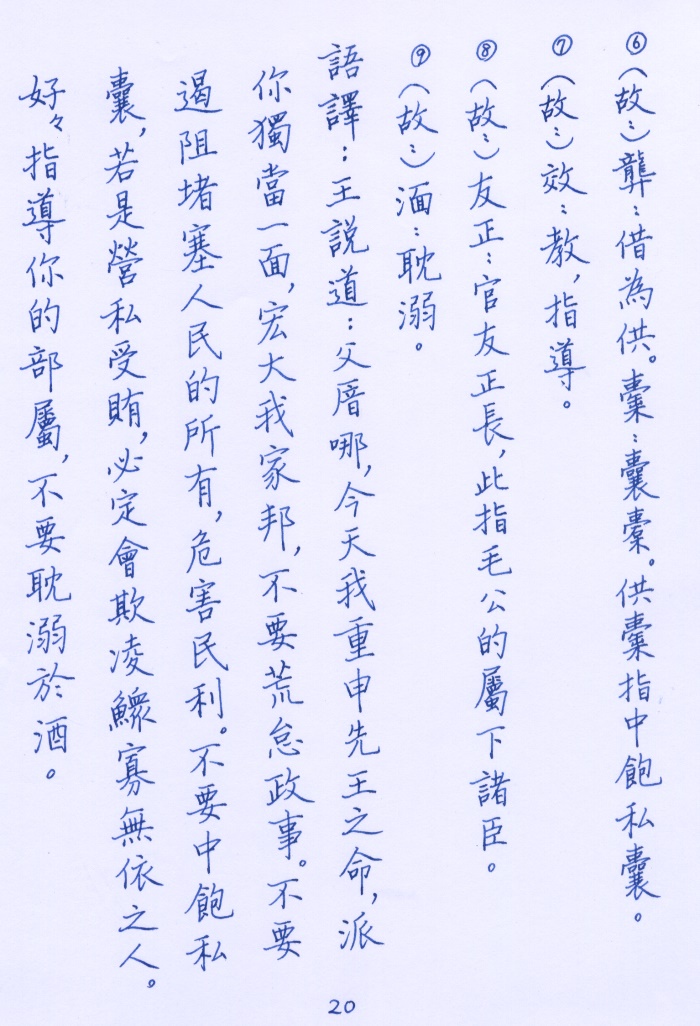 ⑥（故：）龔：借為供。橐：囊橐。供橐指中飽私囊。
⑦（故：）效：教，指導。
⑧（故：）友正：官友正長，此指毛公的屬下諸臣。
⑨（故：）湎：耽溺。
語譯：王説道：父厝哪，今天我重申先王之命，派
你獨當一面，宏大我家邦，不要荒怠政事。不要
遏阻堵塞人民的所有，危害民利。不要中飽私
囊，若是營私受賄，必定會欺凌鰥寡無依之人。
好々指導你的部屬，不要耽溺於酒。
20